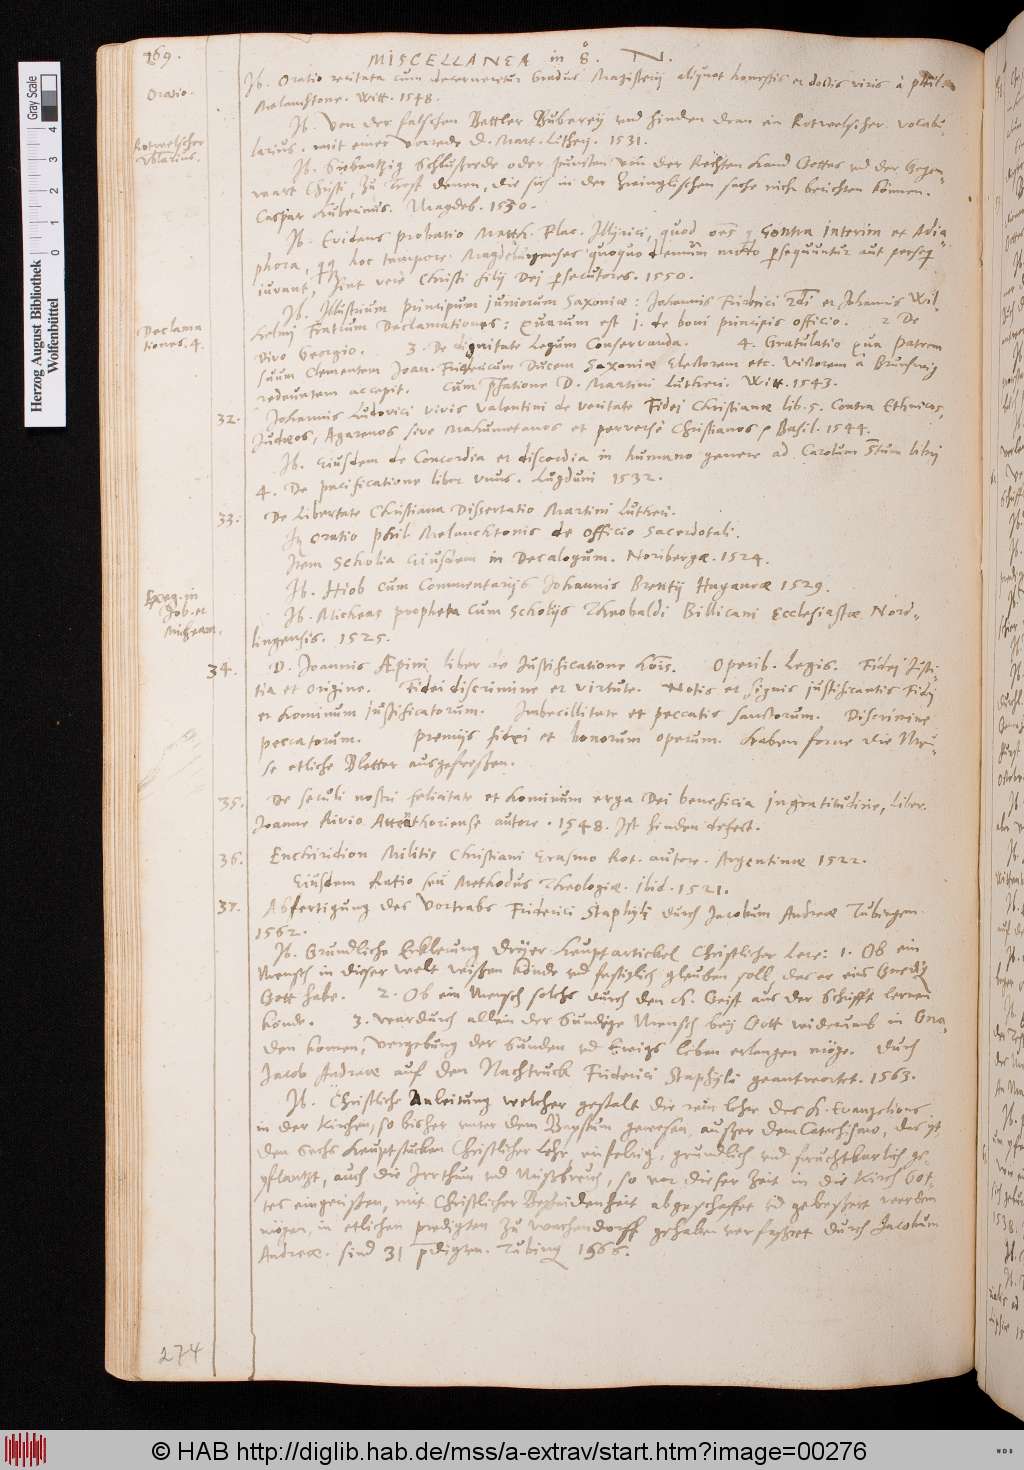 169.
MISCELLANEA in 8°. N.
Oratio.
Ib. Oratio recitata cum decerneretur Gradus Magisterij aliquot honestis et doctis viris à Phil.
Melanchtone. Witt. 1548.
Rotwelscher
Vocabularius.
Ib. Von der falschen Bettler Büberey vnd hinden dran ein Rotwelscher Vocabu-
larius. mit einer Vorrede D. Mart. Lutherj. 1531.
Ib. Siebentzig Schlusrede oder puncten von der Rechten Hand Gottes vnd der Gegen-
wart Christi, zu Trost denen, die sich in der Zwinglischen sache nich berichten können.
Caspar Huberinus. Magdeb. 1530.
Ib. Evidens probatio Matth. Flac. Illyrici, quod oes q Contra Interim et Adia-
phora, hoc tempore Magdeburgenses quoquo demum modo persequuntur aut perseq
iuvant, sint vere Christi filij Dej persecutores. 1550.
Declama
tiones. 4.
Ib. Illustrium principum juniorum Saxoniæ: Johannis Friderici 2di et Johannis Wil-
helmj Fratrum Declamationes: Quarum est 1. de boni principis officio. 2 De
Divo Georgio. 3. De dignitate Legum Conservanda. 4. Gratulatio qua Patrem
suum Clementem Joan. Fridericum Ducem Saxoniæ Electorem etc. Victorem à Brunswig
redeuntem accepit. Cum pfatione D. Martini Lutheri. Witt. 1543.
32. Johannis Ludovici Vivis Valentini de veritate Fidej Christianæ lib. 5. Contra Ethnicos,
Judæos, Agarenos sive Mahumetanos et perverse Christianos. Basil. 1544.
Ib. Eiusdem de Concordia et discordia in humano genere ad Carolum 5tum libri
4. De pacificatione liber vnus. Lugduni 1532.
33. De Libertate Christiana Dissertatio Martini Lutheri.
It. Oratio phil Melanchtonis de officio Sacerdotali.
Item Scholia Eiusdem in Decalogum. Noribergæ. 1524.
Exeg. in
Job. et
Micheam.
Ib. Hiob cum Commentarijs Johannis Brentij Haganoæ 1529.
Ib. Micheas propheta cum Scholijs Theobaldi Billicani Ecclesiastæ Nord-
lingensis. 1525.
34. D. Joannis Æpini liber de Justificatione hois. Operib. Legis. Fidej Justi-
tia et origine. Fidei discrimine et virtute. Notis et signis justificantis Fidej
et hominum justificatorum. Imbecillitate et peccatis sanctorum. Discrimine
peccatorum. Premijs fidei et bonorum operum. haben forne die Meu-
se etliche Bletter ausgefreßen.
35. De seculi nostri felicitate et hominum erga Dei beneficia ingratitudine, liber.
Joanne Rivio Attendoriense autore. 1548. Ist hinden defect.
36. Enchiridion Militis Christiani Erasmo Rot. autore. Argentinæ 1522.
Eiusdem Ratio seu Methodus Theologiæ. ibid. 1521.
37. Abfertigung des Vortrabs Friderici Staphyli durch Jacobum Andreæ Tübingen
1562.
Ib. Grundliche Erklerung dreyer Hauptartickel Christlicher Lere: 1. Ob ein
Mensch in dieser welt wissen könde vnd festiglich glauben soll das er ein Gnedig
Gott habe. 2. Ob ein Mensch solchs durch den H. Geist aus der Schrifft lernen
könde. 3. Wardurch allein der Sündige Mensch bey Gott widerumb in Gna-
den komen, Vergebung der Sunden vnd Ewigs leben erlangen möge. durch
Jacob Andreæ auf den Nachtruck Friderici Staphyli geantwortet. 1563.
Ib. Christliche Anleitung welcher gestalt die rein lehre des H. Evangelions
in der Kirchen, so bisher vnter dem Bapstum gewesen, außer dem Catechismo, das ist
den Sechs Hauptstucken Christlicher lehr, einfeltig, grundlich vnd fruchtbarlich ge-
pflantzt, auch die Irrthum vnd Mißbreuch, so vor dieser Zeit in die Kirch Got-
tes eingerißen, mit Christlicher Bescheidenheit abgeschaffet vnd gebessert werden
mögen, in etlichen predigten zu Wachendorff gehalten verfasset durch Jacobum
Andreæ. sind 31 pdigten. Tubing 1566.
274
Gray Scale
4
3
2
1
0
Herzog August Bibliothek
Wolfenbüttel
© HAB http://diglib.hab.de/mss/a-extrav/start.htm?image=00276